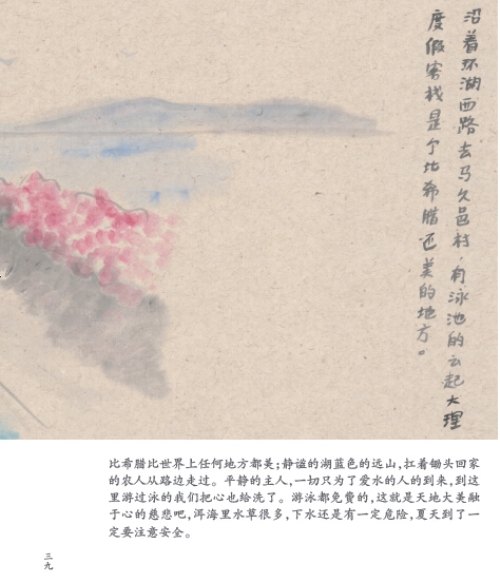 沿着环湖西路去马久邑村，有泳池的云起大理
度假客栈是个比希腊还美的地方。
比希腊比世界上任何地方都美;静谧的湖蓝色的远山,扛着锄头回家
的农人从路边走过。平静的主人,一切只为了爱水的人的到来,到这
里游过泳的我们把心也给洗了。游泳都免费的,这就是天地大美融
于心的慈悲吧,洱海里水草很多,下水还是有一定危险,夏天到了一
定要注意安全。
三九